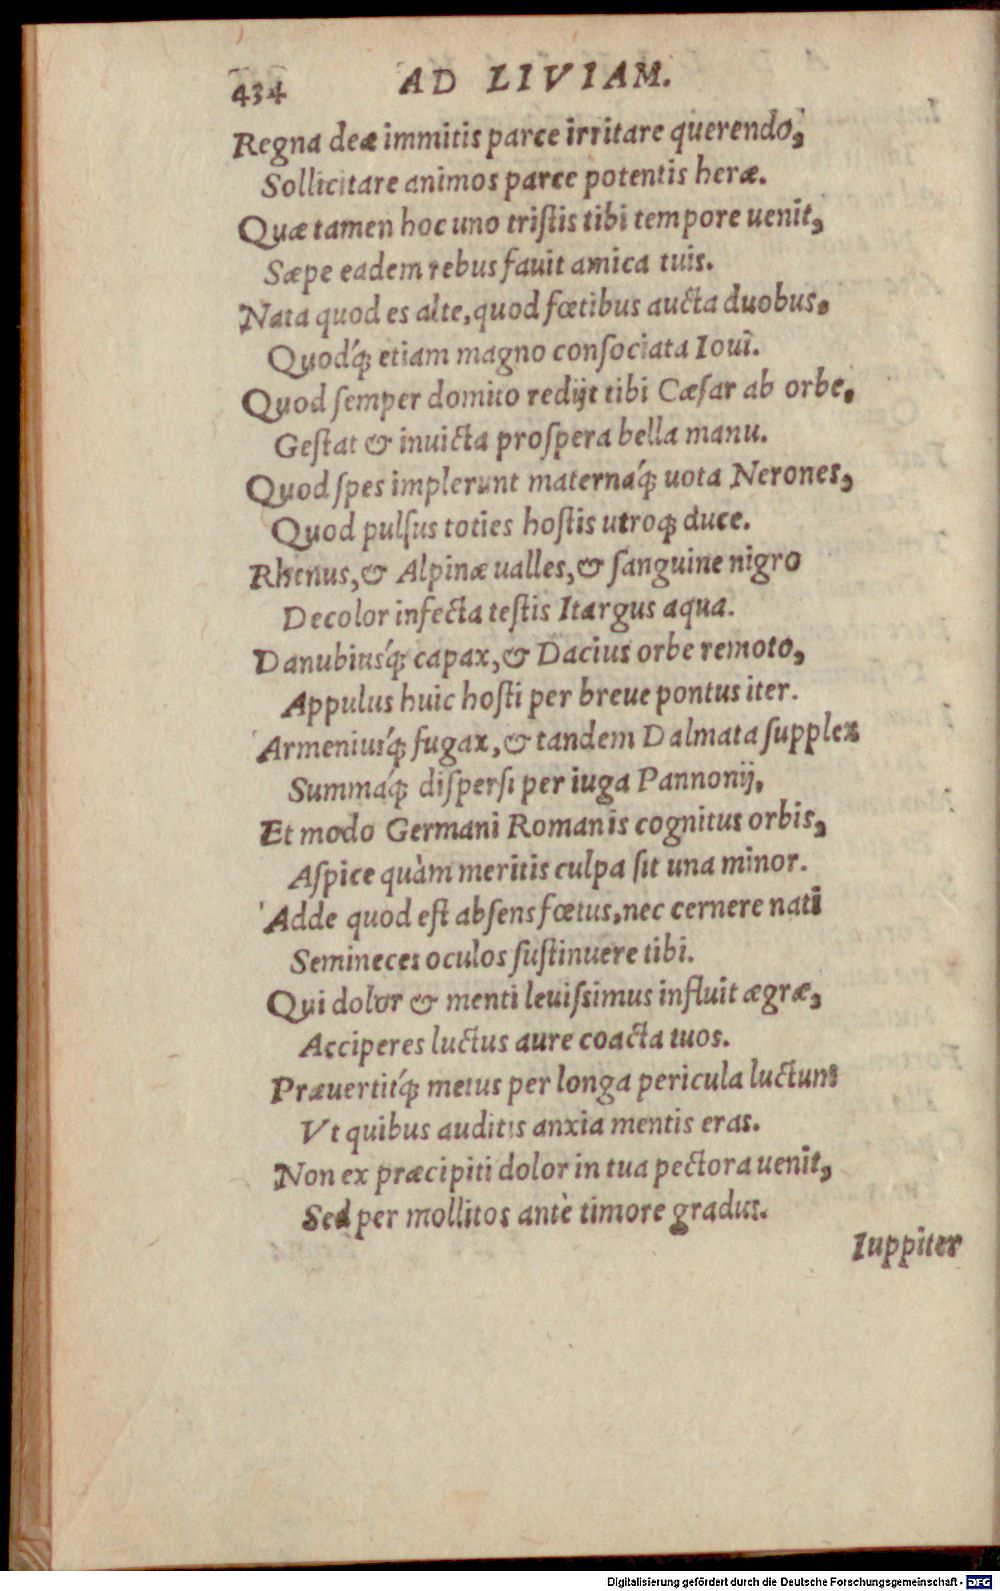 434 AD LIVIAM.
Regna deæ immitis parce irritare querendo,
Sollicitare animos parce potentis heræ.
Quæ tamen hoc uno triſtis tibi tempore uenit,
Sæpe eadem rebus fauit amica tuis.
Nata quod es alte, quod fœtibus aucta duobus.
Quodq́; etiam magno conſociata Ioui.
Quod ſemper domito redijt tibi Cæſar ab orbe.
Geſtat & inuicta proſpera bella manu.
Quod ſpes implerunt maternaq́; uota Nerones,
Quod pulſus toties hoſtis utroq; duce.
Rhenus, & Alpinæ ualles, & ſanguine nigro
Decolor infecta teſtis Itargus aqua.
Danubiusq́; capax, & Dacius orbe remoto,
Appulus huic hoſti per breue pontus iter.
Armeniusq́; fugax, & tandem Dalmata ſupplex
Summaq́; diſperſi per iuga Pannonij,
Et modo Germani Romanis cognitus orbis,
Aſpice quàm meritis culpa ſit una minor.
Adde quod eſt abſens fœtus, nec cernere nati
Semineces oculos ſuſtinuere tibi.
Qui dolor & menti leuiſsimus influit ægræ,
Acciperes luctus aure coacta tuos.
Præuertitq́; metus per longa pericula luctum
Vt quibus auditis anxia mentis eras.
Non ex præcipiti dolor in tua pectora uenit,
Sed per mollitos antè timore gradus.
Iuppiter
Digitalisierung gefördert durch die Deutsche Forschungsgemeinschaft - DFG